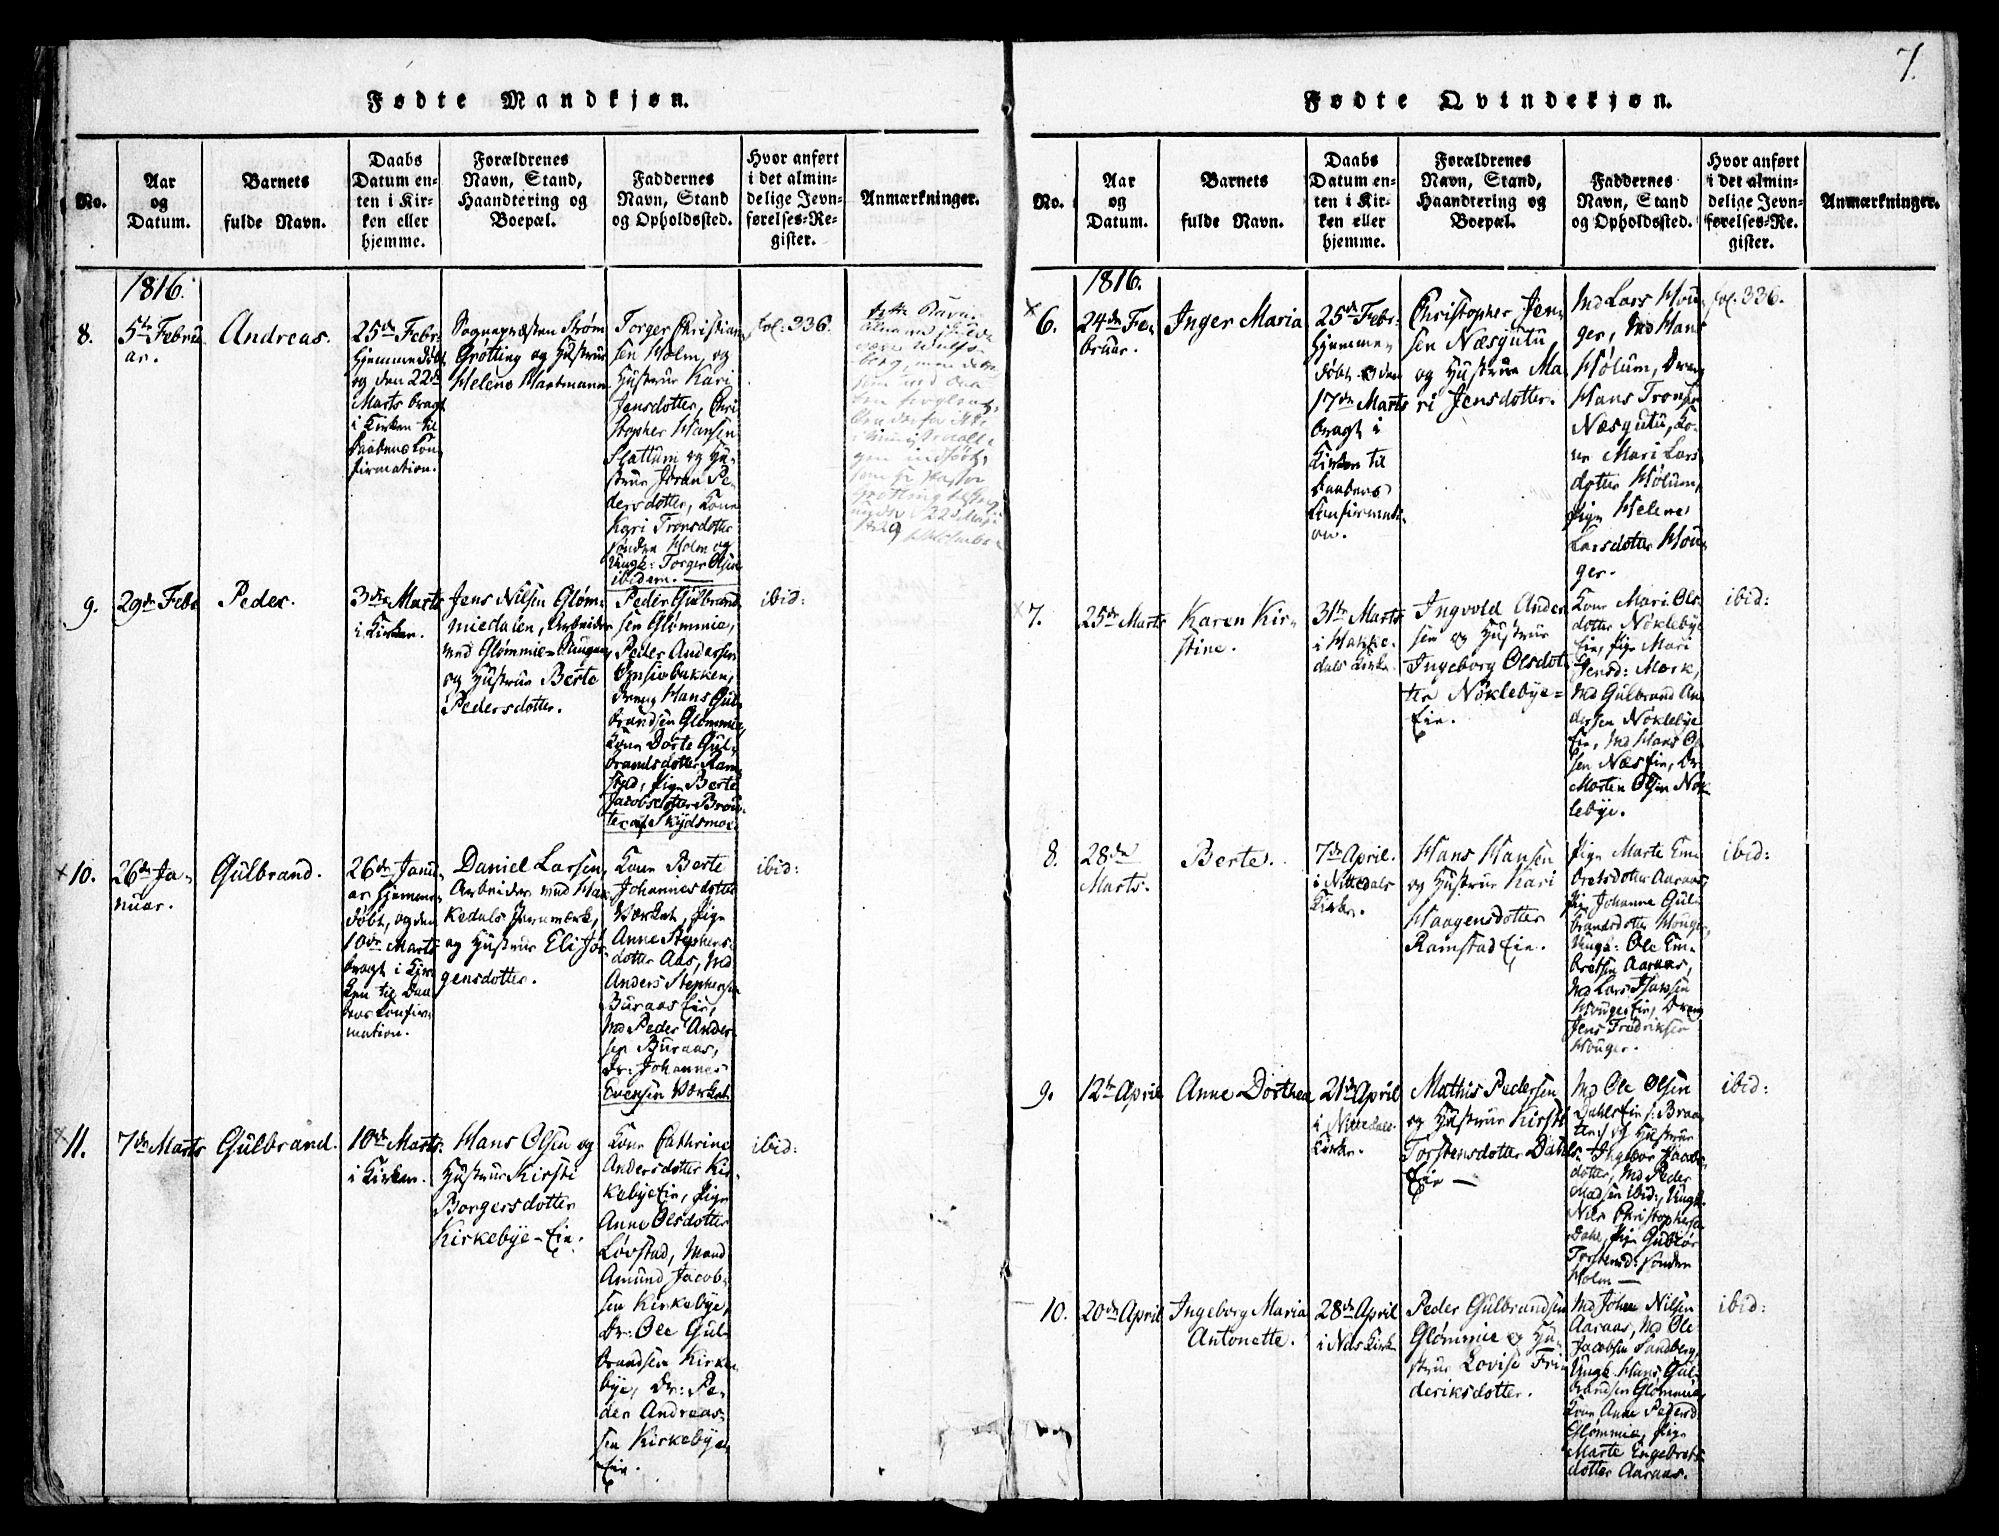 7.
Fødte Mandkjøn.
No.
Aar
og
Datum.
Barnets
fulde Navn.
Daabs
Datum en-
ten i Kir-
ken eller
hjemme.
Forældrenes
Navn, Stand,
Haandtering og
Boepæl.
Faddernes
Navn, Stand
og Opholdssted.
Hvor anført
i det almin-
delige Jevn-
førelses-Re-
gister.
Anmærkninger.
1816.
8.
5te Febru
ar.
Andreas.
25de Febr:
hjemmedøbt
og den 22de
Marts bragt
i Kirken til
Daabens Con-
firmation.
Sognepræsten Strøm
Grøtting og Hustrue
Helene Hartmann
Torger Christian
sen Holm, og
Hustrue Kari
Jensdotter, Chri
stopher Hansen
Slattum og Hu-
strue Jöran Pe-
dersdotter, Kone
Kari Tronsdotter
søndre Holm og
Ungk: Torger Olsen
ibidem.
fol: 336.
9.
29de Febr
Peder.
3die Marts
i Kirken.
Jens Nilsen Glöm-
miedalen, Arbeider
ved Glömmie-Saugen
og Hustrue Berte
Pedersdotter.
Peder Gulbrand
sen Glömmie,
Peder Andersen
bakken,
Dreng Hans Gul-
brandsen Glömmie,
Kone Dorte Gul-
brandsdotter Ram-
stad, Pige Berte
Jacobsdotter
ibid:
x 10.
26de Ja-
nuar.
Gulbrand.
26de Janu
ar hjemme-
døbt, og den
10de Marts
bragt i Kir-
ken til Daa-
bens Confir-
mation.
Daniel Larsen,
Arbeider ved Hak-
kedals Jernværk,
og Hustrue Eli Jör-
gensdotter.
Kone Berte
Johannesdotter
Værket, Pige
Anne Stephens-
dotter Aas, Md
Anders Stephensen
Buraas Eie,
Md Peder Ander-
sen Buraas,
Dr: Johannes
Evensen Værket
ibid:
x 11.
7de Marts
Gulbrand.
10de Marts
i Kirken.
Hans Olsen og
Hustrue Kirsti
Borgersdotter
Kirkebye-Eie.
Kone Cathrine
Andersdotter Kir-
kebye Eie, Pige
Anne Olsdotter
Løvstad, Mand
Amund Jacob-
sen Kirkebye,
Dr: Ole Gul-
brandsen Kirke-
bye, Dr: Pe-
der Andreas-
sen Kirkebye
Eie.
ibid:
Fødte Qvindekjøn.
No.
Aar
og
Datum.
Barnets
fulde Navn.
Daabs
Datum en-
ten i Kir-
ken eller
hjemme.
Forældrenes
Navn, Stand,
Haandtering og
Boepæl.
Faddernes
Navn, Stand
og Opholdssted.
Hvor anført
i det almin-
delige Jevn-
førelses-Re-
gister.
Anmærkninger.
1816.
x 6.
24de Fe-
bruar.
Inger Maria
25de Febr:
hjemme-
døbt og den
17de Marts
bragt i
Kirken til
Daabens
Confirmati-
on.
Christopher Jen-
sen Næsgutu
og Hustrue Ma-
ri Jensdotter.
Md Lars Hou-
ger, Md Hans
Hölum, Dreng
Hans Tronsen
Næsgutu, Ko-
ne Mari Lars-
dotter Hölum,
Pige Helene
Larsdotter Hou-
ger.
fol. 336.
x 7.
25de Marts
Karen Kir-
stine.
31te Marts
i Hakke-
dals Kirke.
Ingvold Ander
sen og Hustrue
Ingeborg Olsdot-
ter Nöklebye-
Eie.
Kone Mari Ols-
dotter Nöklebye
Eie, Pige Mari
Jensd: Mærk,
Md Gulbrand An-
dersen Nöklebye
Eie, Md Hans Ol-
sen Næs Eie, Dr:
Morten Olsen Nök-
lebye.
ibid:
8.
28de
Marts.
Berte.
7de April.
i Nittedals
Kirke.
Hans Hansen
og Hustrue Kari
Haagensdotter
Ramstad Eie.
Pige Marte Em-
bretsdotter Aaraas,
Pig Johanne Gul-
brandsdotter Houger,
Ungk: Ole Em-
bretsen Aaraas,
Md Lars Hansen
Houger Eie, Dreng
Jens Fredriksen
Houger.
ibid:
9.
12te April
Anne Dorthea
21de April
i Nittedals
Kirke.
Mathis Pedersen
og Hustrue Kirsti
Torstensdotter Dahls-
Eie
Md Ole Olsen
Dahls Eie (: Braa-
ten:) og Hustrue
Ingebor Jacobs-
dotter, Md Peder
Madsen ibid:, Ungk:
Nils Christophersen
Dahl, Pige Gubiör
Torstensd: søndre
Holm
ibid:
10.
20de April
Ingeborg Maria
Antonette.
28de April
i Næs Kirke
Peder Gulbrandsen
Glömmie og Hu-
strue Lovise Fri-
deriksdotter.
Md Johan Nilsen
Aaraas, Md Ole
Jacobsen Sandberg,
Ungk. Hans Gul-
brandsen Glömmie,
Kone Anne Pedersd
Glömmie, Pige
Marte Engebrets-
dotter Aaraas.
ibid: